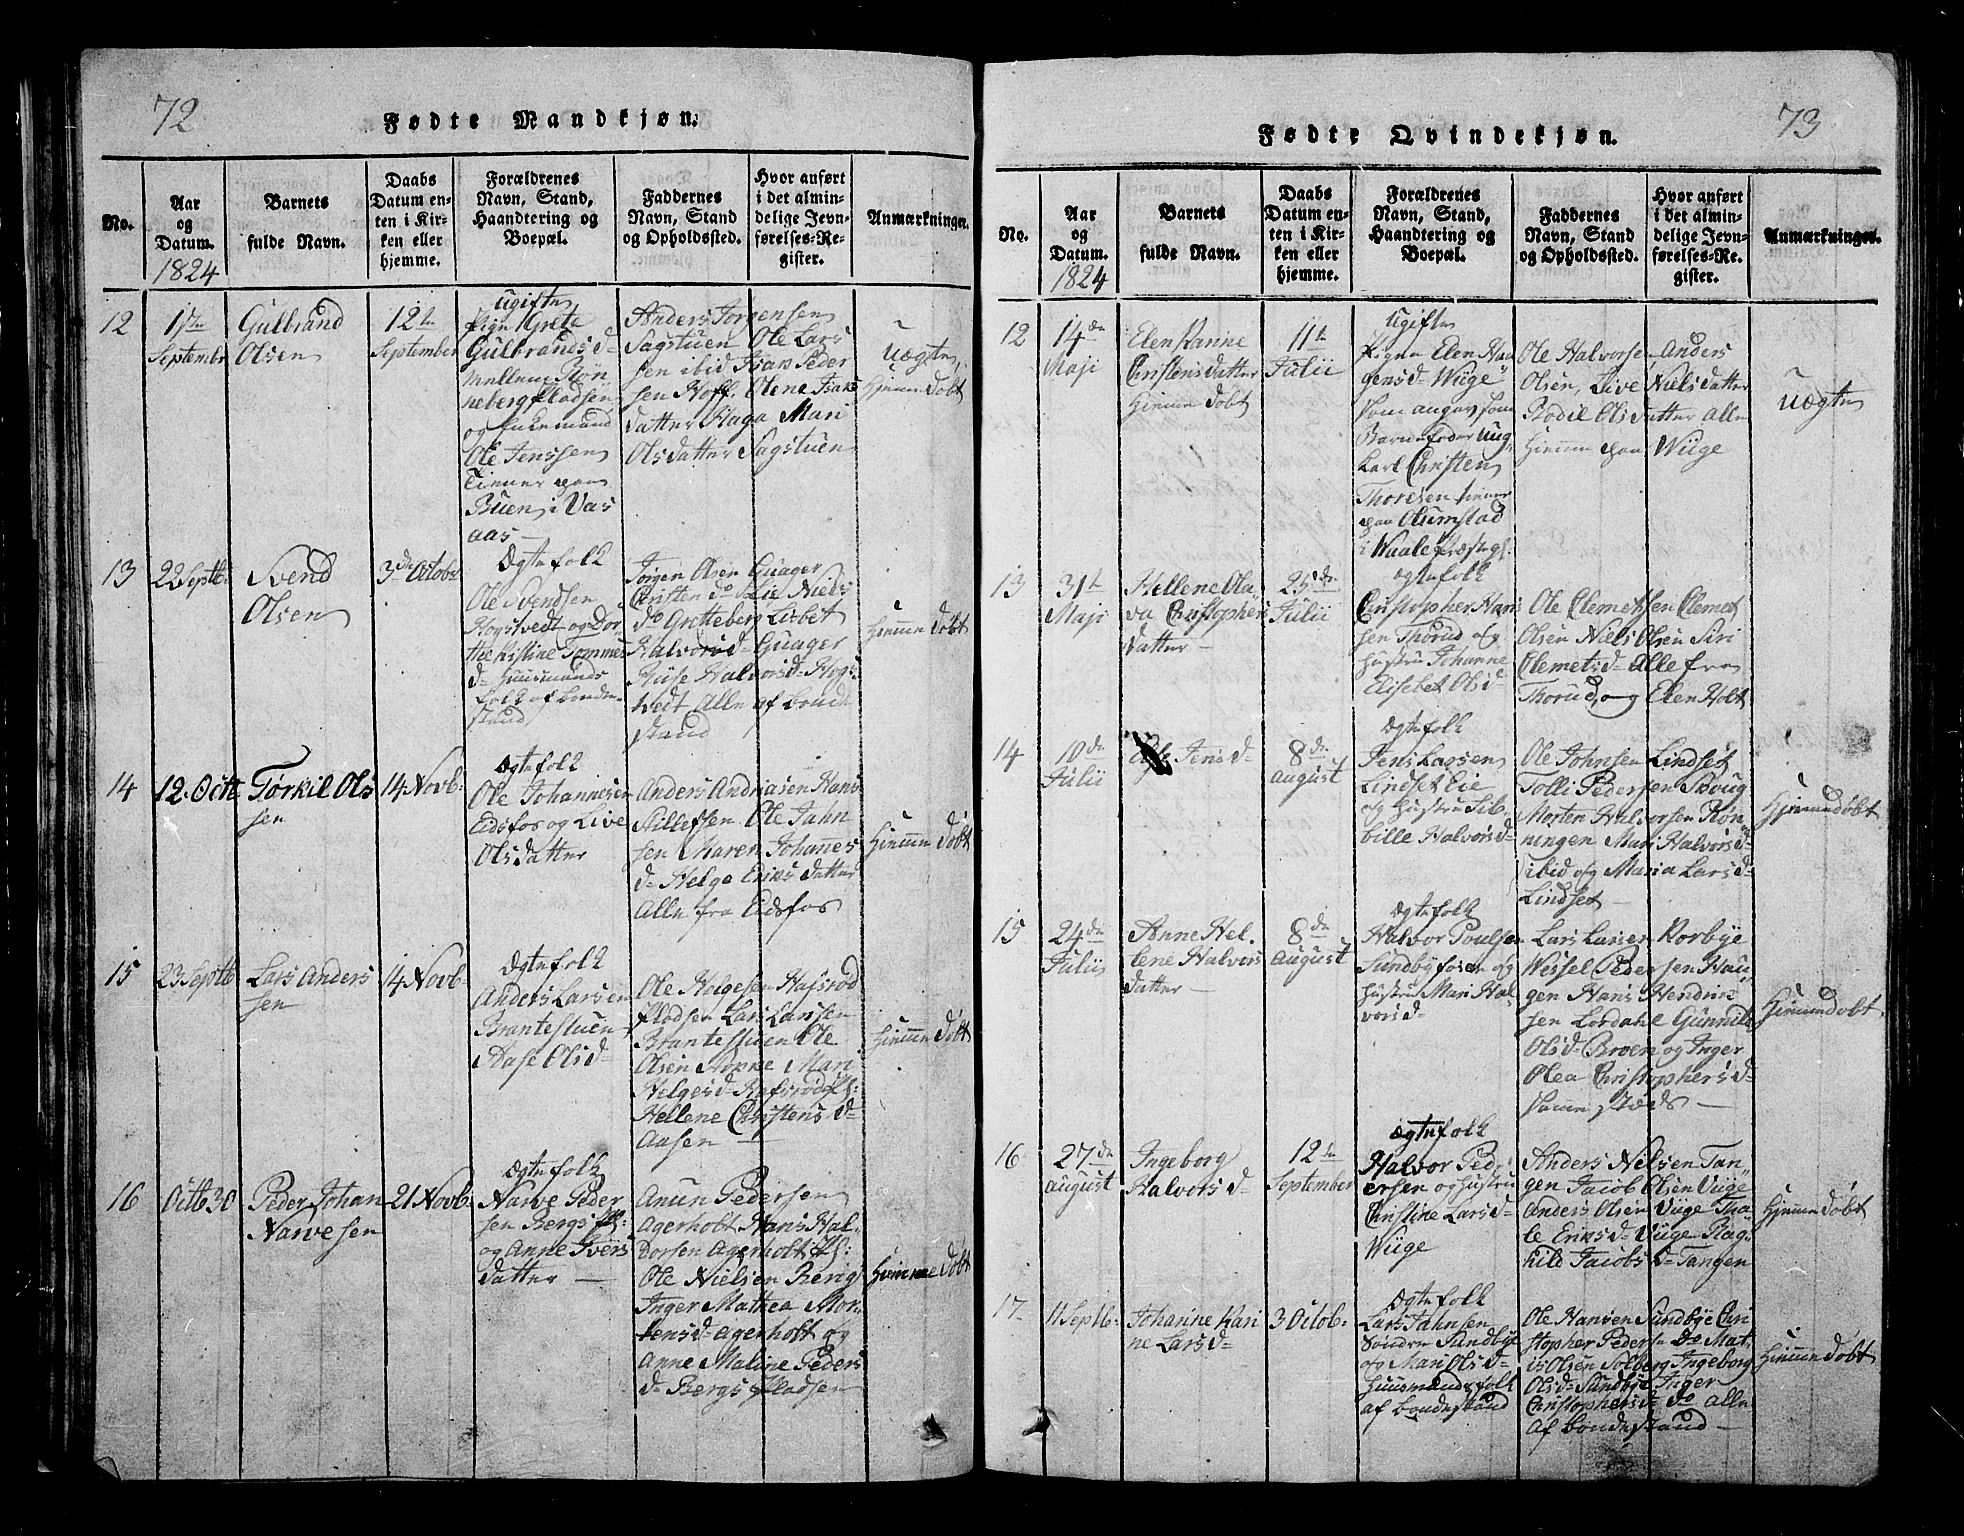 72
Fødte Mandkjøn.
No.
Aar
og
Datum.
1824
Barnets
fulde Navn.
Daabs
Datum en-
ten i Kir-
ken eller
hjemme.
Forældrenes
Navn, Stand,
Haandtering og
Boepæl.
Faddernes
Navn, Stand
og Opholdssted.
Hvor anført
i det almin-
delige Jevn-
førelses-Re-
gister.
Anmærkninger.
12
1ste
Septembr
Gulbrand
Olsen
12te
September
ugifte
Pige Grete
Gulbrandsd-
mellem Røn
neberg Pladsen
og Enkemand
Ole Jenssen
Tiener paa
Buen i Vas
aas-
Anders Jorgensen
Sagstuen Ole Lars
sen ibid Isak Peder
sen Hoff, Olene Isaks
datter Haga Mari
Olsdatter Sagstuen
uægte,
Hiemme døbt
13
22 Septb
Svend
Olsen
3de Octobr
Ægtefolk
Ole Svendsen
Hogstvedt og Dor-
the Kistine Tommes
d- Huusmands
folk af bonde-
stand
Jørgen Olsen Guager
Christen do Lie Niels
do Gretteberg Lisbet
Halvorsd- Guager
Halvorsd- Hogs
vedt Alle af bonde
stand
Hiemme døbt
14
12. Octb
Torkil Ols
sen
14 Novb-
Ægtefolk
Ole Johannesen
Eidsfos og Live
Olsdatter
Anders Andriasen Hans
Stillefsen Ole Jahn
sen Maren Johannes
d- Helge Eriks datter
Alle fra Eidsfos
Hiemme døbt
15
23 Septb
Lars Anders
sen
14 Novb-
Ægtefolk
Anders Larsen
Brantestuen
Aase Olsd-
Ole Helgesen Hafsrød
Pladsen Lars Larssen
Brantestuen Ole
Olsen Moppe Mari
Helgesd- Hafsrød
Hellene Christens d-
Aasen
Hiemme døbt
16
Octb 30
Peder Johan
Narvesen
21 Novb-
Ægtefolk
Narve Peder
sen Bergs
og Anne Ivers
datter
Anun Pedersen
Agerholt Hans Hal-
vorsen Agerholt
Ole Nielsen Berig
Inger Mathea Mor-
tensd- Agerholt og
Anne Maline Peders
d- Bergs Pladsen
Hiemme døbt
73
Fødte Qvindekjøn.
No.
Aar
og
Datum.
1824
Barnets
fulde Navn.
Daabs
Datum en-
ten i Kir-
ken eller
hjemme.
Forældrenes
Navn, Stand,
Haandtering og
Boepæl.
Faddernes
Navn, Stand
og Opholdssted.
Hvor anført
i det almin-
delige Jevn-
førelses-Re-
gister.
Anmærkninger.
12
14de
Maji
Elen Karine
Christensdatter
Hiemme døbt
11te
Julii
ugifte
Pigen Elen Haa
gensd- Wiige
som angav som
Barnefader Ung-
karl Christen
Thoresen tiener
paa Olumstad
i Waale Præstegl.
Ole Halvorsen Anders
Olsen, Live Nielsdatter
Bodil Olsdatter alle
hiemme paa Wiige
uægte
13
31te
Maji
Hellene Ola
va Christophers
datter-
25de
Julii
Ægtefolk
Christopher Han
sen Thorud og
Hustru Johanne
Elisebet Olsd-
Ole Clemetsen Clemet
Olsen Niels Olsen Siri
Clemetsd- Alle fra
Thorud, og Elen Holt
14
10de
Julii
Jensd-
8de
August
Ægtefolk
Jens Larsen
Lindset Eie
og Hustru Sib-
bille Halvorsd-
Ole Johnsen Lindset
Tolli Pedersen Skoug
Morten Halvorsen Røn-
ningen Mari Halvorsd-
ibid og Maria Larsd-
Lindset
Hjemmedøbt
15
24de
Julii
Anne Hel-
lene Halvors
datter-
8de
August
Ægtefolk
Halvor Poulsen
Sundbyfosen og
Hustru Mari Hal-
vorsd-
Lars Larsen Korbye
Wessel Pedersen Hau-
gen Hans Hendrik
sen Lordahl Gunnild
Olsd- Broen og Inger
Olea Christophersd-
samme steds
Hjemmedøbt
16
27de
August
Ingeborg
Halvorsd-
12te
September
Ægtefolk
Halvor Ped-
ersen og Hustru
Christine Larsd-
Wiige
Anders Nelsen Tan-
gen Jacob Olsen Viige
Anders Olsen Viige Tha-
le Eriksd- Viige Rag-
hild Jacobsd- Tangen
Hjemme døbt
17
11 Septb:
Johanne Kari
ne Larsd-
3 Octob-
Ægtefolk
Lars Jahnsen
Søndre Sundbye
og Mari Olsd-
Huusmandsfolk
af bondestand
Ole Hansen Sundbye Chri
stopher Pedersen Do Mat
is Olsen Solberg Ingeborg
Olsd- Sundbye Inger
Christophersd- do alle
af bondestand
Hiemme døbt